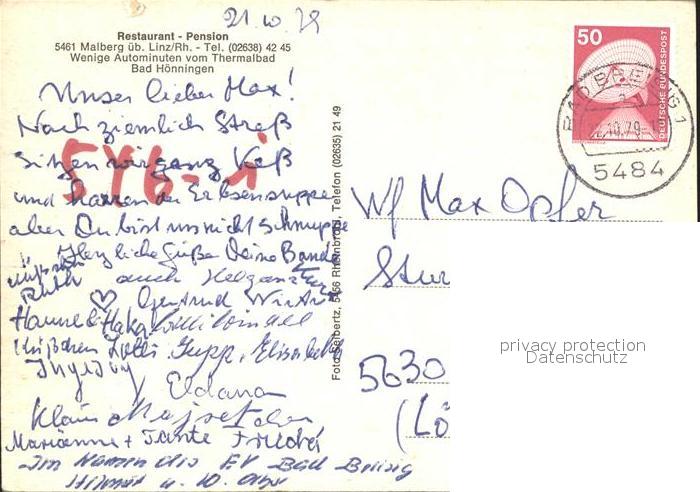 21.10.79
Restaurant - Pension
5461 Malberg üb. Linz/Rh. - Tel. (02638) 42 45
Wenige Autominuten vom Thermalbad
Bad Hönningen
Unser lieber Max!
Nach ziemlich Streß
sitzen wir ganz Keß
und harren der Erbsensuppe
aber Du bist uns nicht Schnuppe
Herzliche Grüße Deine Bande
Ruth auch
Gertrud
Hanne &
Küßchen Lolli Jupp, Elisabeth
Ingeborg
Klaus
Marianne + Tante Friedel
Im Namen des EV Bad Breisig
546=1
Foto Seibertz, 5456 Rheinbrohl, Telefon (02635) 21 49
50
DEUTSCHE BUNDESPOST
BAD BREISIG 1
.10.79-
5484
Max Opfer
Stur
5630
(Lö
privacy protection
Datenschutz